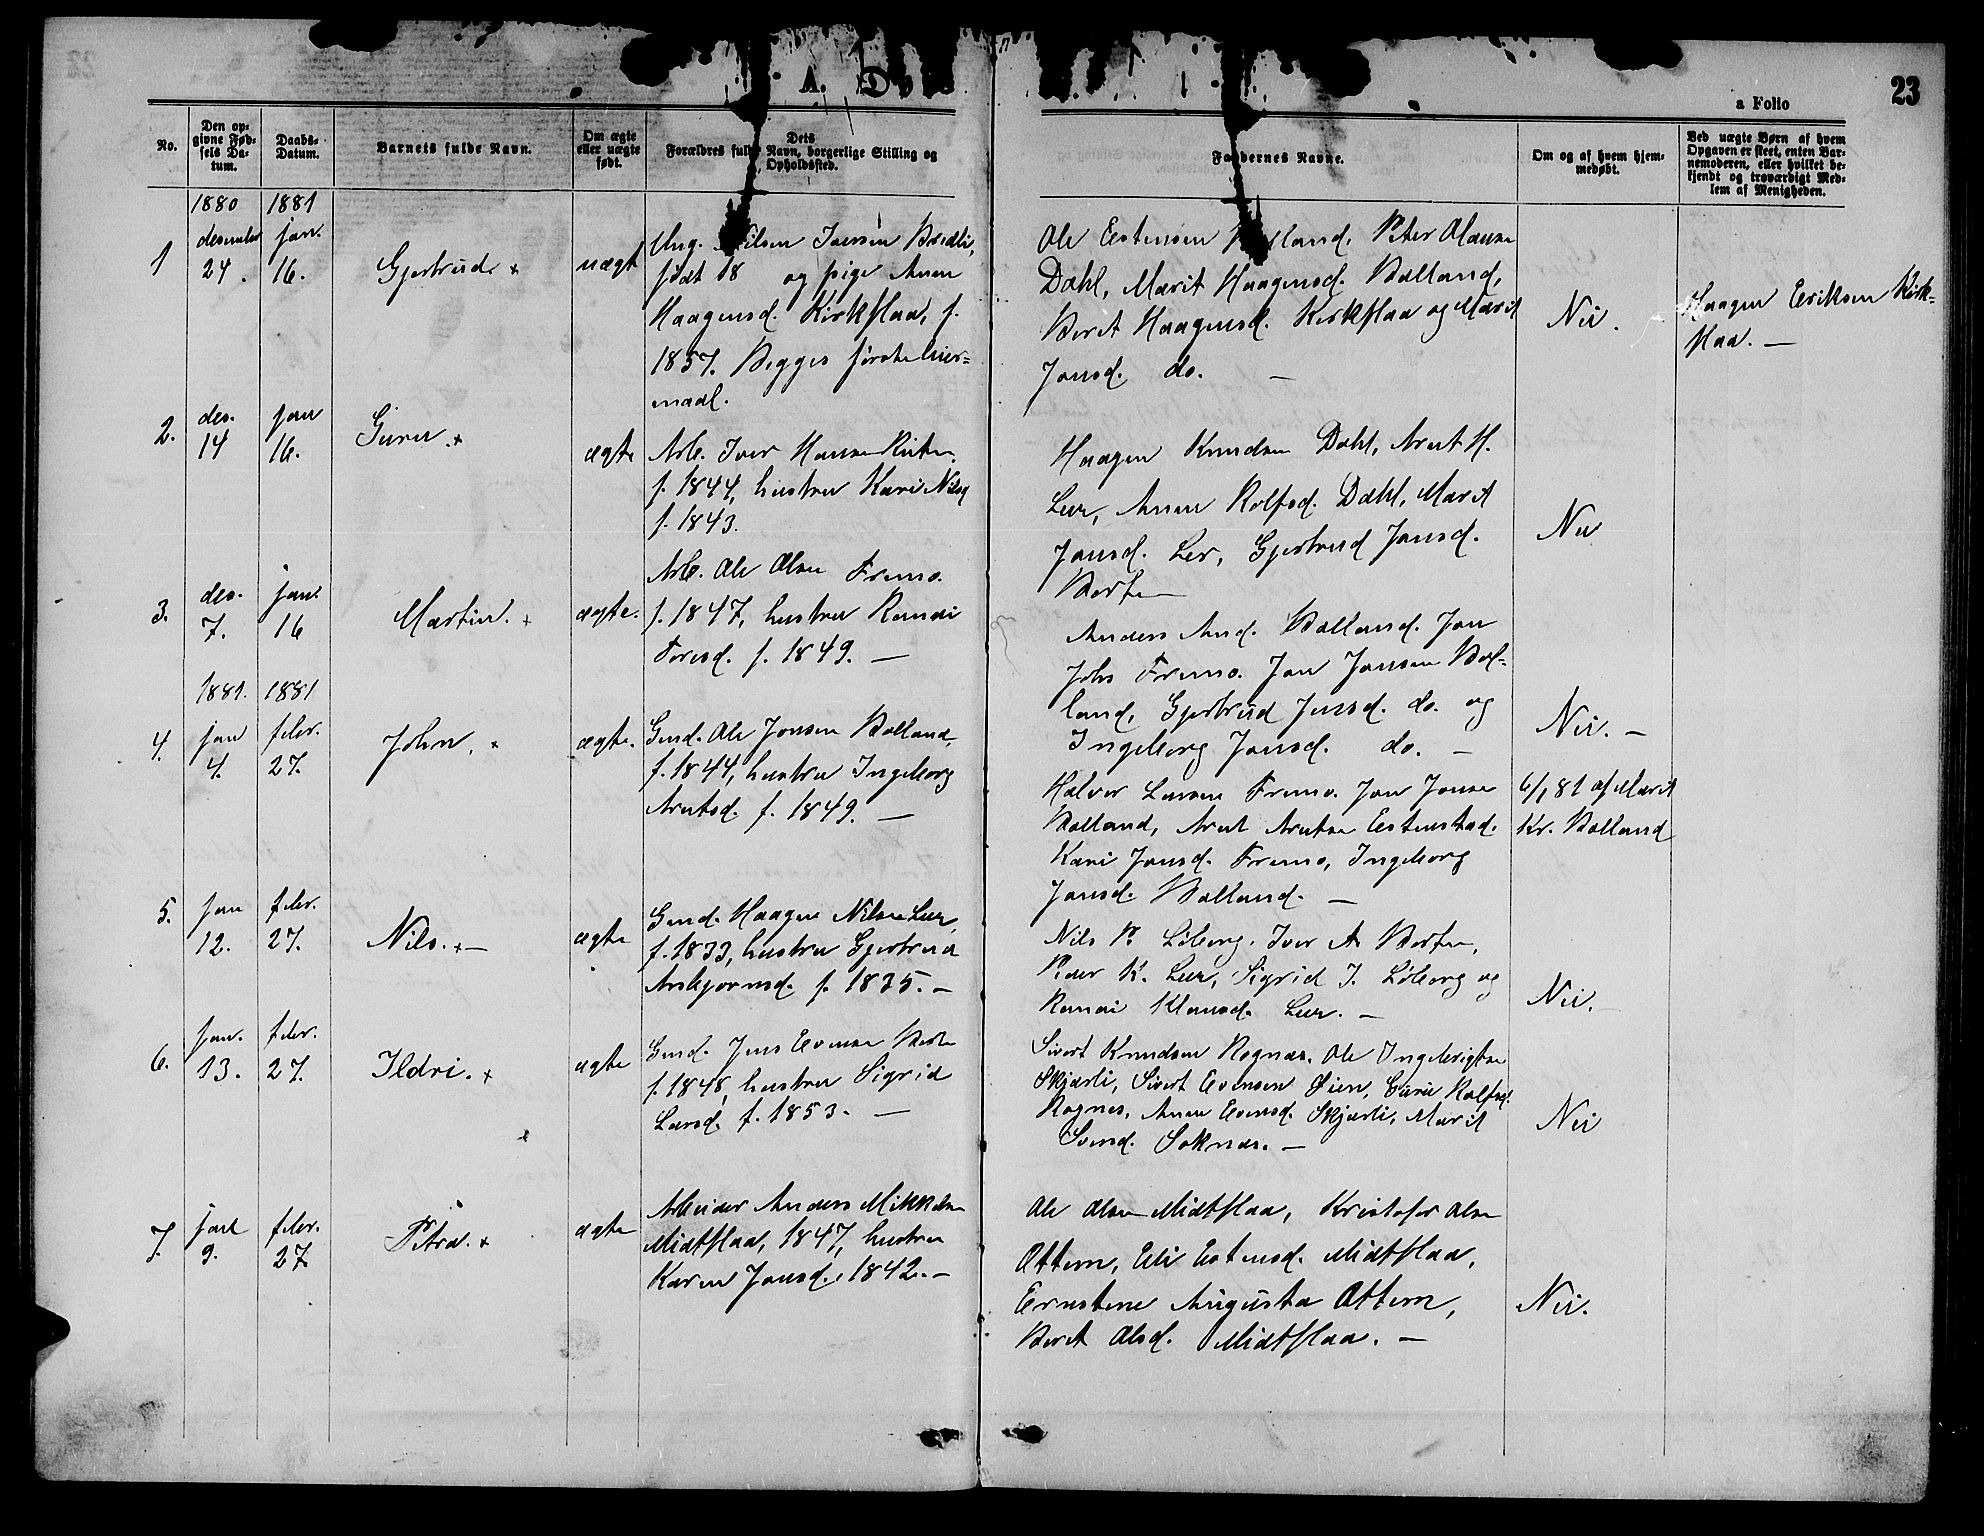 A. D
a Folio
23
No.
Den op-
givne Fød-
sels Da-
tum.
Daabs-
Datum.
Barnets fulde Navn.
Om ægte
eller uægte
født.
Dets
Forældres fulde Navn, borgerlige Stilling og
Opholdssted.
Faddernes Navne.
Om og af hvem hjem-
medøbt.
Ved uægte Børn af hvem
Opgaven er skeet, enten Bar-
nemoderen, eller hvilket be-
kjendt og troværdigt Med-
lem af Menigheden.
1880 1881
1
desember
24.
jan.
16.
Gjertrud. +
uægt
Ung. Nilsen Brædli,
født 18 og pige Anne
Haagensd. Kirkflaa, f.
1857. Begges første leier-
maal.
Ole Estensen Peter Olausen
Dahl, Marit Haagensd. Bolland,
Beret Haagensd. Kirkflaa og Marit
Jonsd. do. —
Nei.
Haagen Eriksen Kirk-
flaa. —
2.
des.
14
jan
16.
Guru. +
ægte
Arb. Iver Hansen
f. 1844, hustru Kari Nilsd
f. 1843.
Haagen Knudsen Dahl, Arnt H.
Leer, Anne Rolfsd. Dahl, Marit
Jonsd. Ler, Gjertrud Jonsd.
Borten
Nei
3.
des.
7.
jan.
16
Martin. +
ægte.
Arb. Ole Olsen Fremo.
f. 1847, hustru Randi
Toresd. f. 1849. —
Anders And. Bolland. Jon
Johs Fremo. Jon Jonsen Bol-
land, Gjertrud Jensd. do. og
Ingeborg Jonsd. do. —
Nei. —
1881. 1881
4.
jan
4.
febr.
27.
John. +
ægte.
Gmd. Ole Jonsen Bolland,
f. 1844, hustru Ingeborg
Arntsd. f. 1849. —
Halvor Larsen Fremo. Jon Jonsen
Bolland, Arnt Arntsen Estenstad.
Kari Jonsd. Fremo, Ingeborg
Jonsd. Bolland. —
6/1 81 af Marit
Kr. Bolland
5.
jan
12.
febr.
27.
Nils. + —
ægte
Gmd. Haagen Nilsen Leer,
f. 1833, hustru Gjertrud
Arnbjørnsd. f. 1835. —
Nils P. Løberg. Iver A Borten,
Peder K. Leer, Sigrid J. Løberg og
Randi Klausd. Leer. —
Nei.
6.
jan.
13.
febr.
27.
Ildri. +
ægte
Gmd. Jens Evensen Borten
f. 1848, hustru Sigrid
Larsd. f. 1853. —
Sivert Knudsen Rognæs. Ole Ingebrigtsen
Skjærli, Sivert Evensen Øien, Guru Rolfsd.
Rognes, Anne Evensd. Skjærli, Marit
Svensd. Soknæs. —
Nei
7.
jan
9.
febr.
27
Petra. +
ægte
Arbeider Anders Mikkelsen
Midtflaa, 1847, hustru
Karen Jonsd., 1842. —
Ole Olsen Midtflaa, Kristofer Olsen
Ottem, Eli Estensd. Midtflaa,
Ernstine Augusta Ottem,
Beret Olsd. Midtflaa. —
Nei.